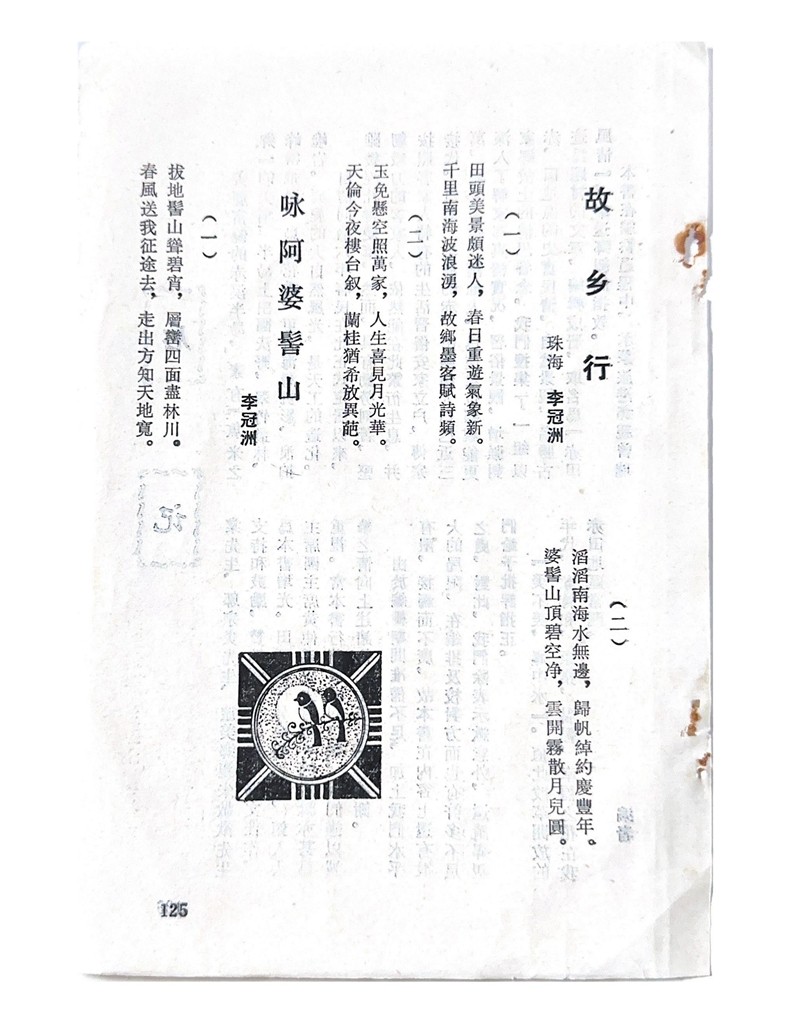 故乡行
珠海 李冠洲
（一）
田頭美景頗迷人，春日重遊氣象新。
千里南海波浪湧，故鄉墨客賦詩頻。
（二）
玉兔懸空照萬家，人生喜見月光華。
天倫今夜樓台叙，蘭桂猶希放異葩。
咏阿婆髻山
李冠洲
（一）
拔地髻山聳碧宵，層巒四面盡林川。
春風送我征途去，走出方知天地寬。
（二）
滔滔南海水無邊，歸帆綽約慶豐年。
婆髻山頂碧空净，雲開霧散月兒圓。
125